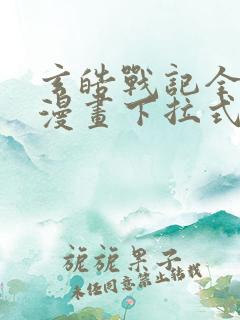 玄皓戰記全
漫畫下拉式
旎旎果子
未经同意禁止转载